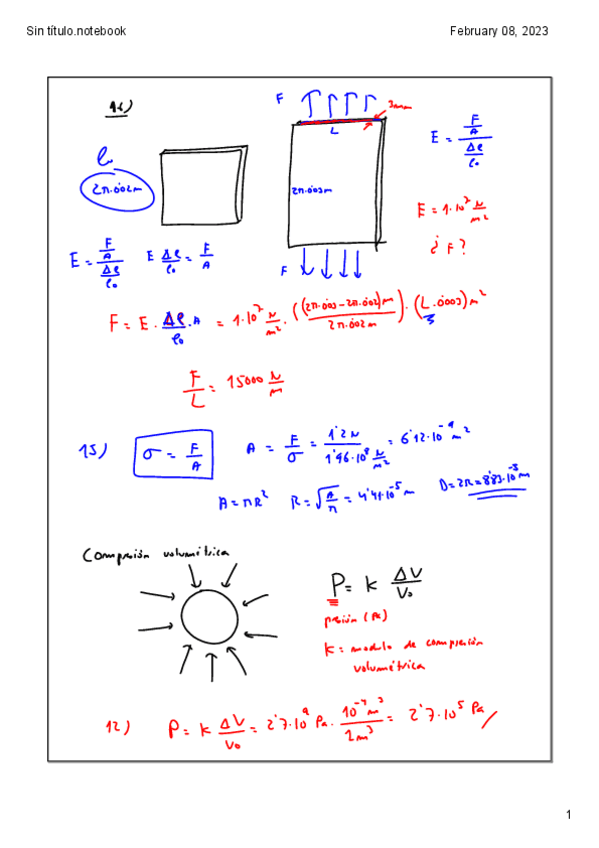 Sin título.notebook
February 08, 2023
16)
F
3mm
L
l₀
2π.0'02m
2π.0'03m
F
E = (F/A)/(Δl/l₀)
E = 1·10⁷ N/m²
¿F?
E = (F/A)/(Δl/l₀) E Δl/l₀ = F/A
F = E · Δl/l₀ · A = 1·10⁷ N/m² · ((2π.0'03 - 2π.0'02)m / 2π.0'02m) · (L.0'003) m²
F/L = 15000 N/m
15)
σ = F/A
A = F/σ = 1'2 N / 1'96·10⁸ N/m² = 6'12·10⁻⁹ m²
A = πR² R = √(A/π) = 4'41·10⁻⁵ m D = 2R = 8'83·10⁻⁵ m
Compresión volumétrica
P = k ΔV/V₀
presión (Pa)
k = modulo de compresión
volumétrica
12) P = k ΔV/V₀ = 2'7·10⁹ Pa · 10⁻⁴ m³ / 1m³ = 2'7·10⁵ Pa
1